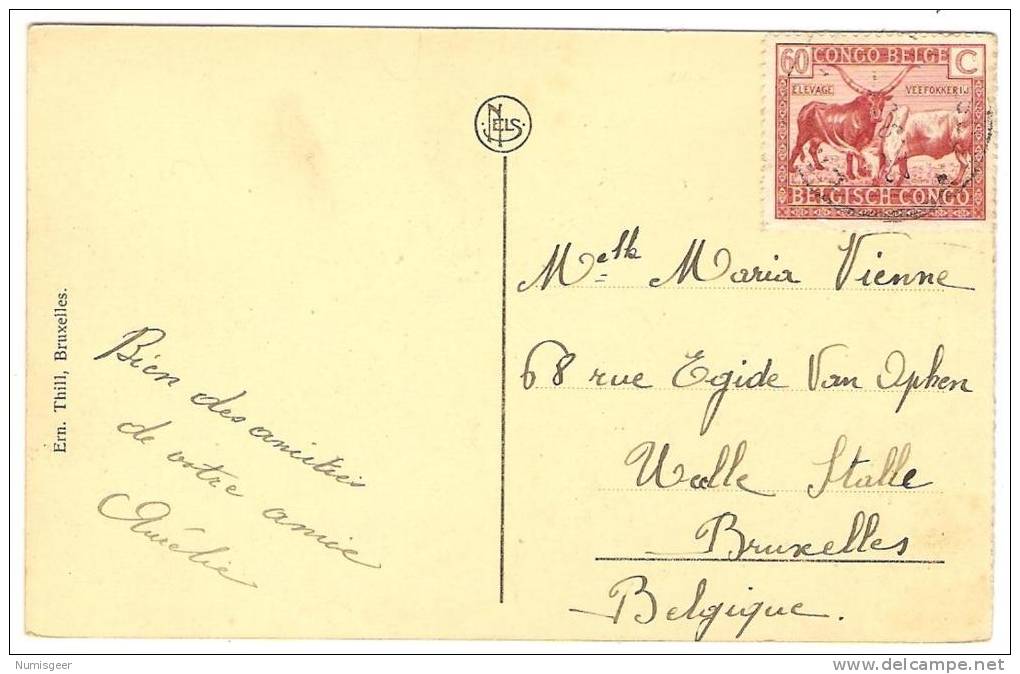 60 CONGO BELGE C
ELEVAGE VEEFOKKERIJ
BELGISCH CONGO
NELS
Melle Maria Vienne
68 rue Egide Van Ophen
Ukkle Stalle
Bruxelles
Belgique.
Bien des amitiés
de votre amie
Aurélie
Ern. Thill, Bruxelles.
Numisgeer
delcampe.net